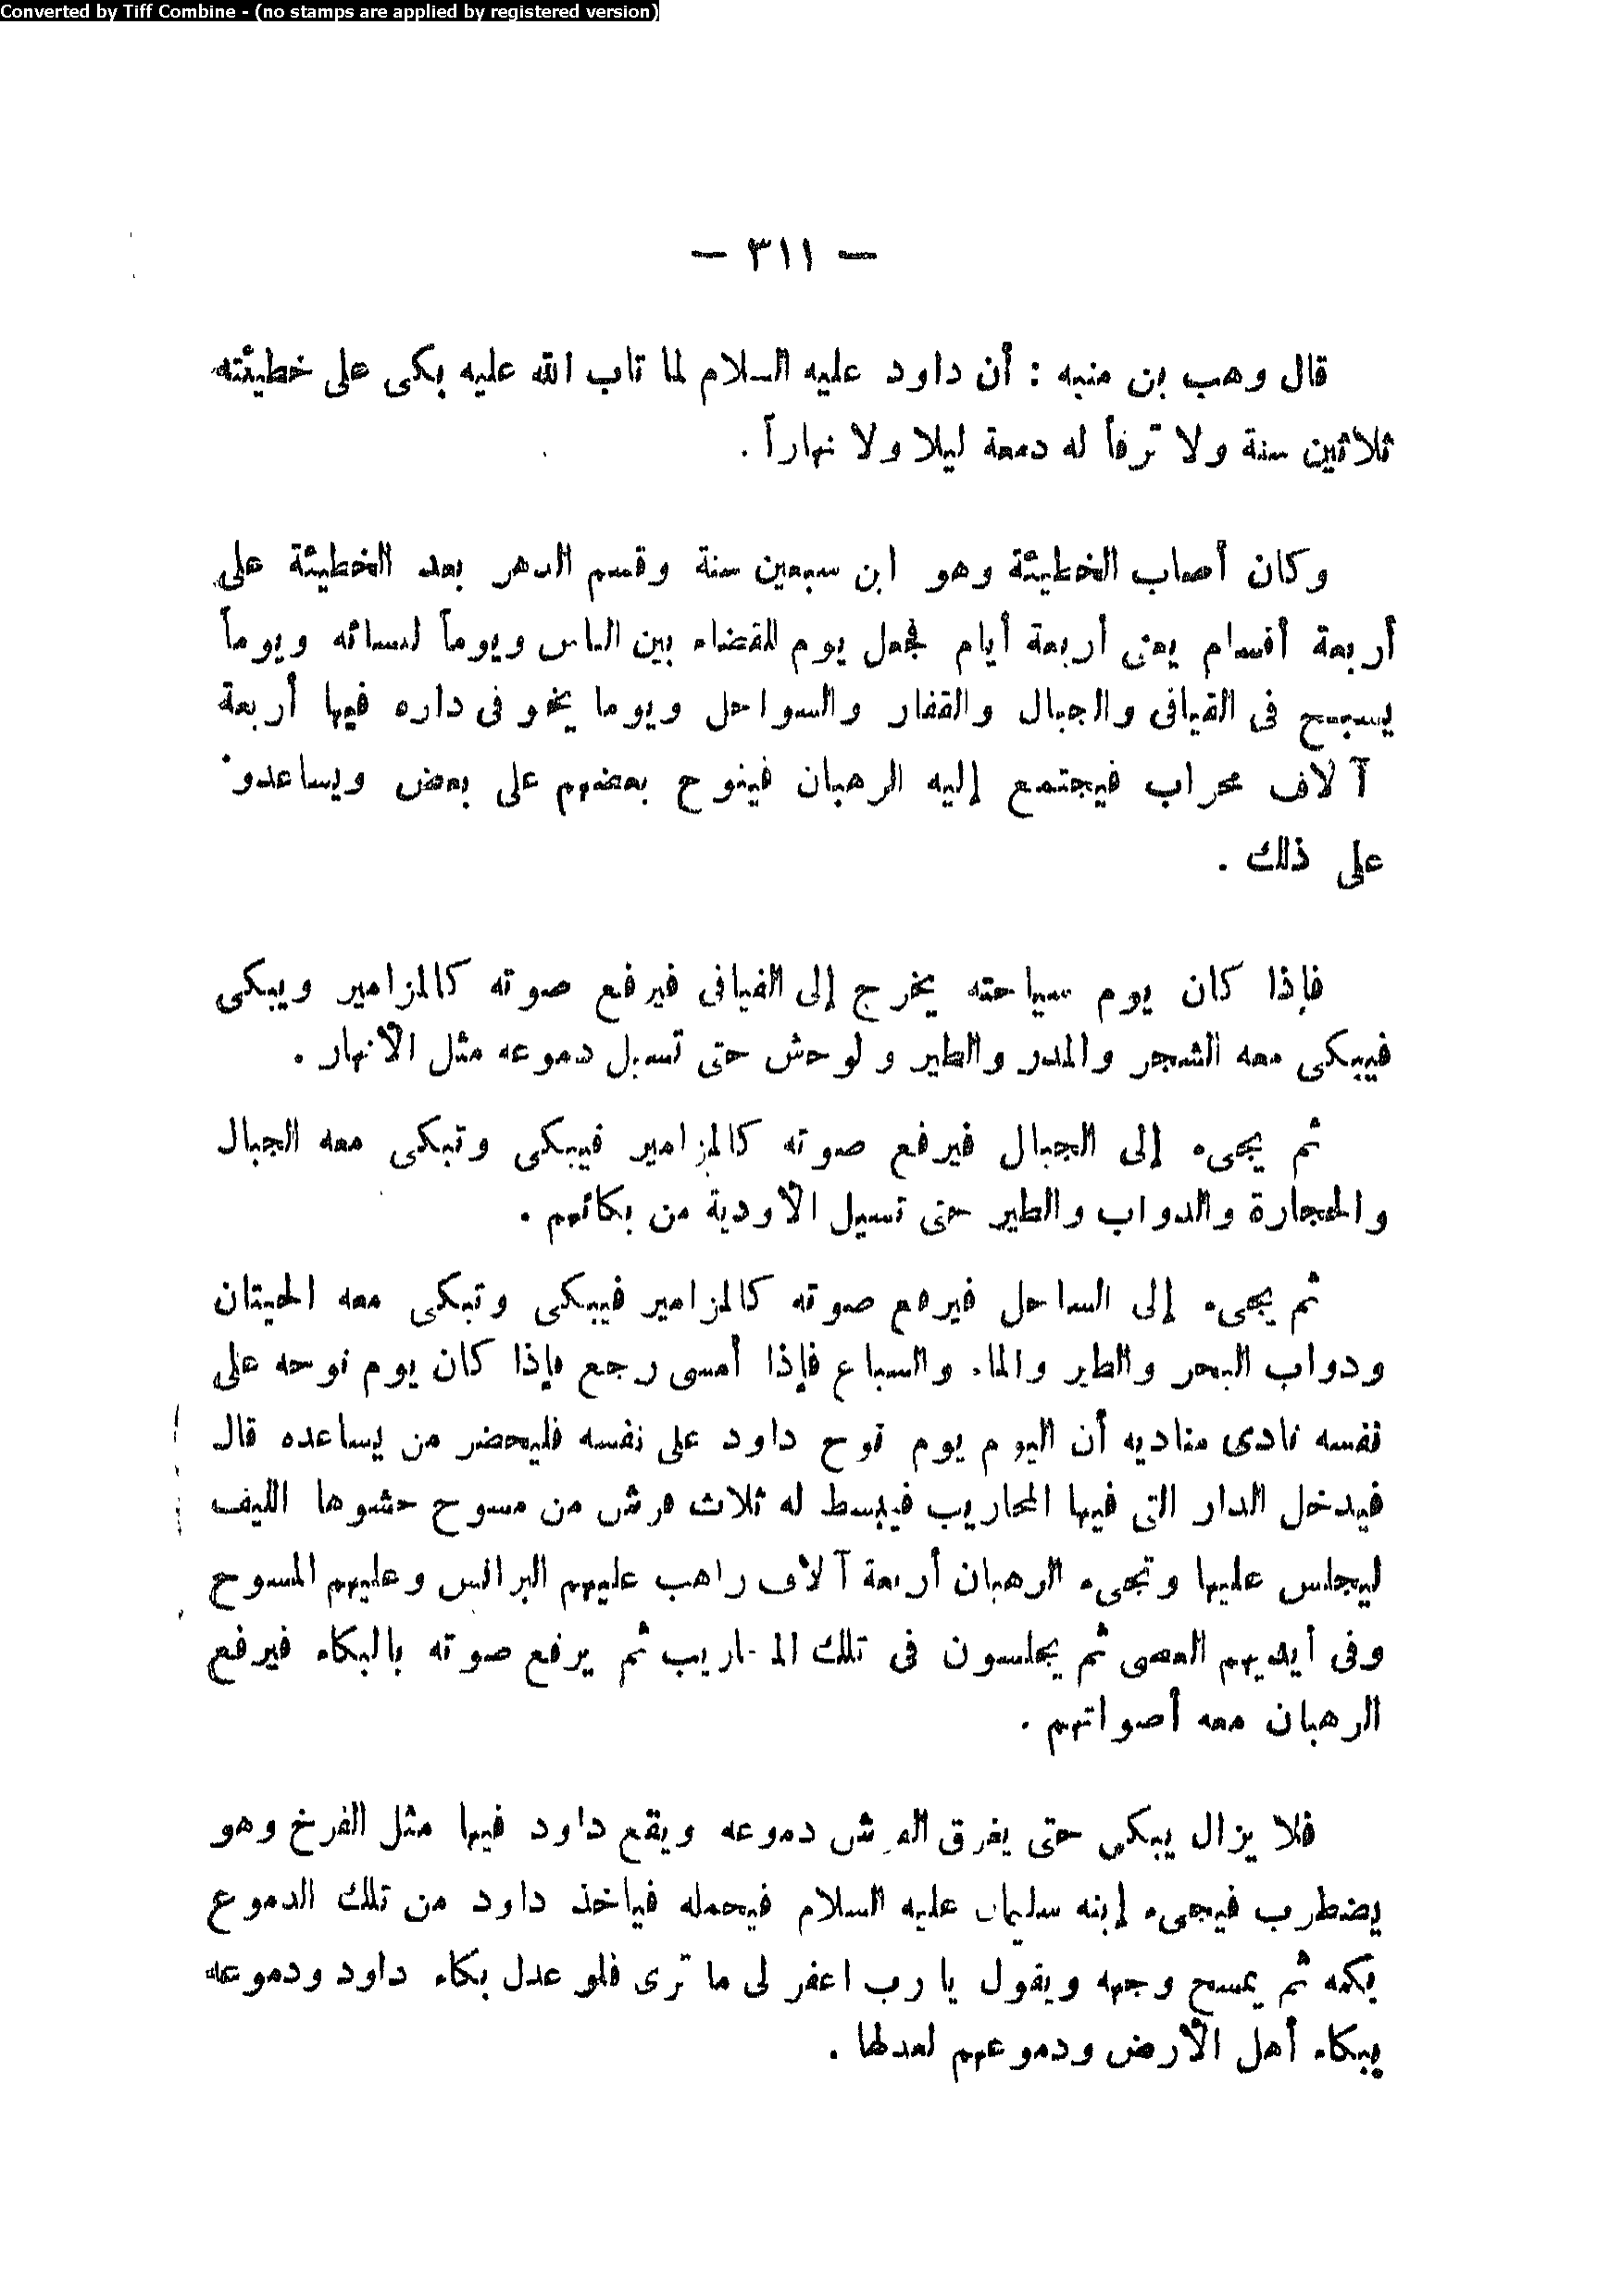 Converted by Tiff Combine - (no stamps are applied by registered version)
— ٣١١ —
قال وهب بن منبه : أن داود عليه السلام لما تاب الله عليه بكى على خطيئته
ثلاثين سنة ولا ترفأ له دمعة ليلا ولا نهاراً .
وكان أصاب الخطيئة وهو ابن سبعين سنة وقسم الدهر بعد الخطيئة على
أربعة أقسام يعنى أربعة أيام فجعل يوم للقضاء بين الناس ويوماً لنسائه ويوماً
يسبح فى الفيافى والجبال والقفار والسواحل ويوما يخو فى داره فيها أربعة
آلاف محراب فيجتمع إليه الرهبان فينوح بعضهم على بعض ويساعدو
على ذلك .
فإذا كان يوم سياحته يخرج إلى الفيافى فيرفع صوته كالمزامير ويبكى
فيبكى معه الشجر والمدر والطير و لوحش حتى تسبل دموعه مثل الأنهار .
ثم يجىء إلى الجبال فيرفع صوته كالمزامير فيبكى وتبكى معه الجبال
والحجارة والدواب والطير حتى تسيل الأودية من بكائهم .
ثم يجىء إلى الساحل فيرفع صوته كالمزامير فيبكى وتبكى معه الحيتان
ودواب البحر والطير والماء والسباع فإذا أمسى رجع فإذا كان يوم نوحه على
نفسه نادى مناديه أن اليوم يوم نوح داود على نفسه فليحضر من يساعده قال
فيدخل الدار التى فيها المحاريب فيبسط له ثلاث فرش من مسوح حشوها الليف
ليجلس عليها وتجىء الرهبان أربعة آلاف راهب عليهم البرانس وعليهم المسوح
وفى أيديهم العصى ثم يجلسون فى تلك المحاريب ثم يرفع صوته بالبكاء فيرفع
الرهبان معه أصواتهم .
فلا يزال يبكى حتى يغرق الفرش دموعه ويقع داود فيها مثل الفرخ وهو
يضطرب فيجىء إبنه سليمان عليه السلام فيحمله فياخذ داود من تلك الدموع
بكفه ثم يمسح وجهه ويقول يا رب اغفر لى ما ترى فلو عدل بكاء داود ودموعه
ببكاء أهل الأرض ودموعهم لعدلها .